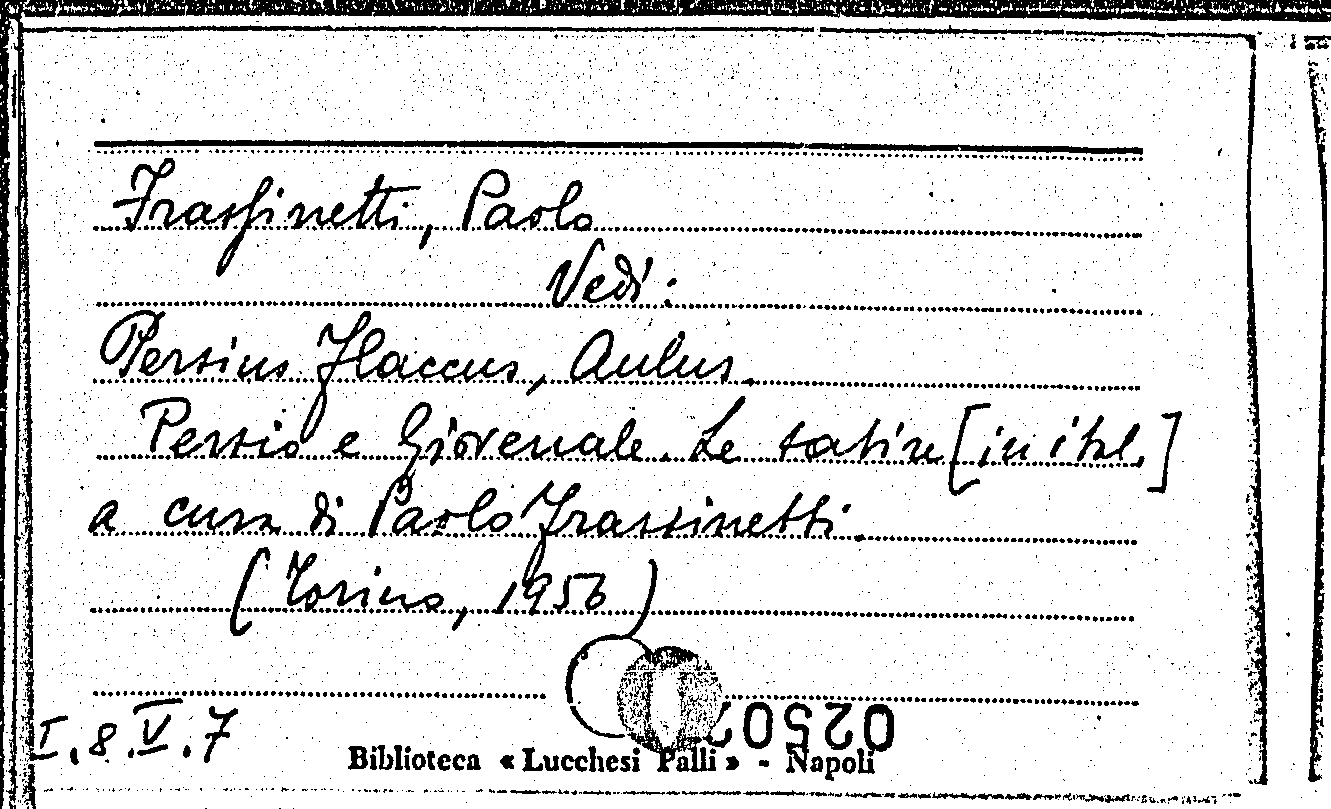 Frassinetti, Paolo
Vedi:
Persius Flaccus, Aulus.
Persio e Giovenale. Le satire [in ital.]
a cura di Paolo Frassinetti.
(Torino, 1956)
I.8.V.7
Biblioteca « Lucchesi Palli » - Napoli